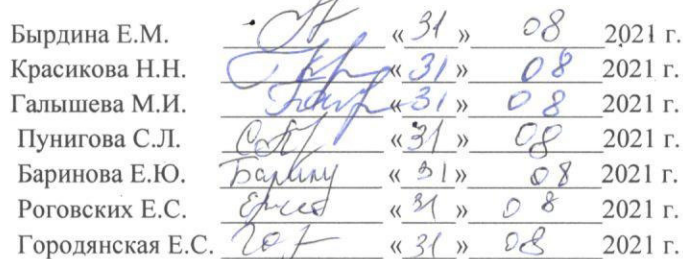 Бырдина Е.М. « 31 » 08 2021 г.
Красикова Н.Н. « 31 » 08 2021 г.
Галышева М.И. « 31 » 08 2021 г.
Пунигова С.Л. « 31 » 08 2021 г.
Баринова Е.Ю. « 31 » 08 2021 г.
Роговских Е.С. « 31 » 08 2021 г.
Городянская Е.С. « 31 » 08 2021 г.